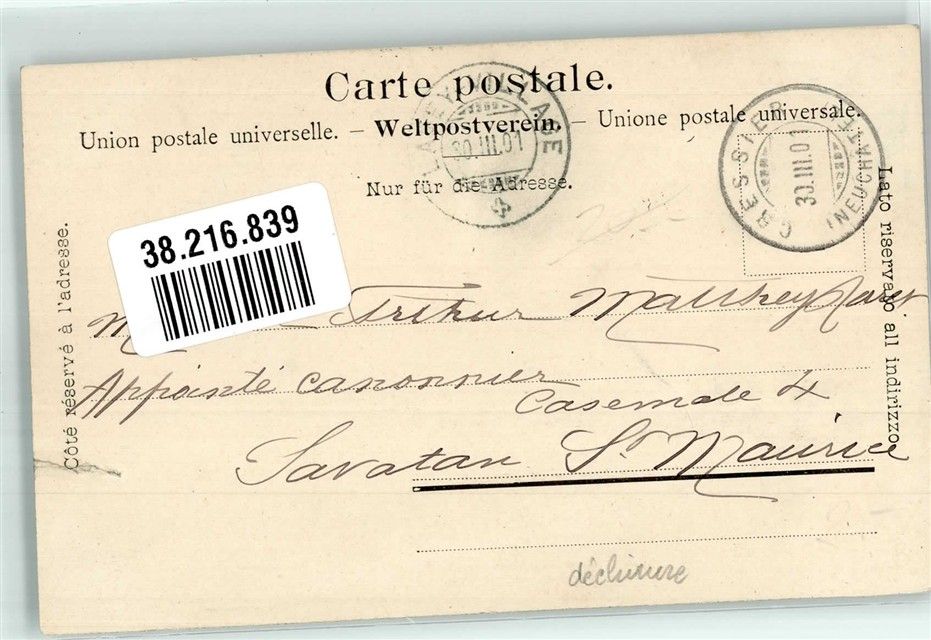 Carte postale.
Union postale universelle. – Weltpostverein. – Unione postale universale.
Nur für die Adresse.
Côté réservé à l'adresse.
Lato riservato all indirizzo
VILLAGE
30.III.01
CRESSIER
(NEUCHÂTEL)
30.III.01
38.216.839
Arthur Matthey
Appointé canonnier
Casemate 4
Savatan St Maurice
déchirure